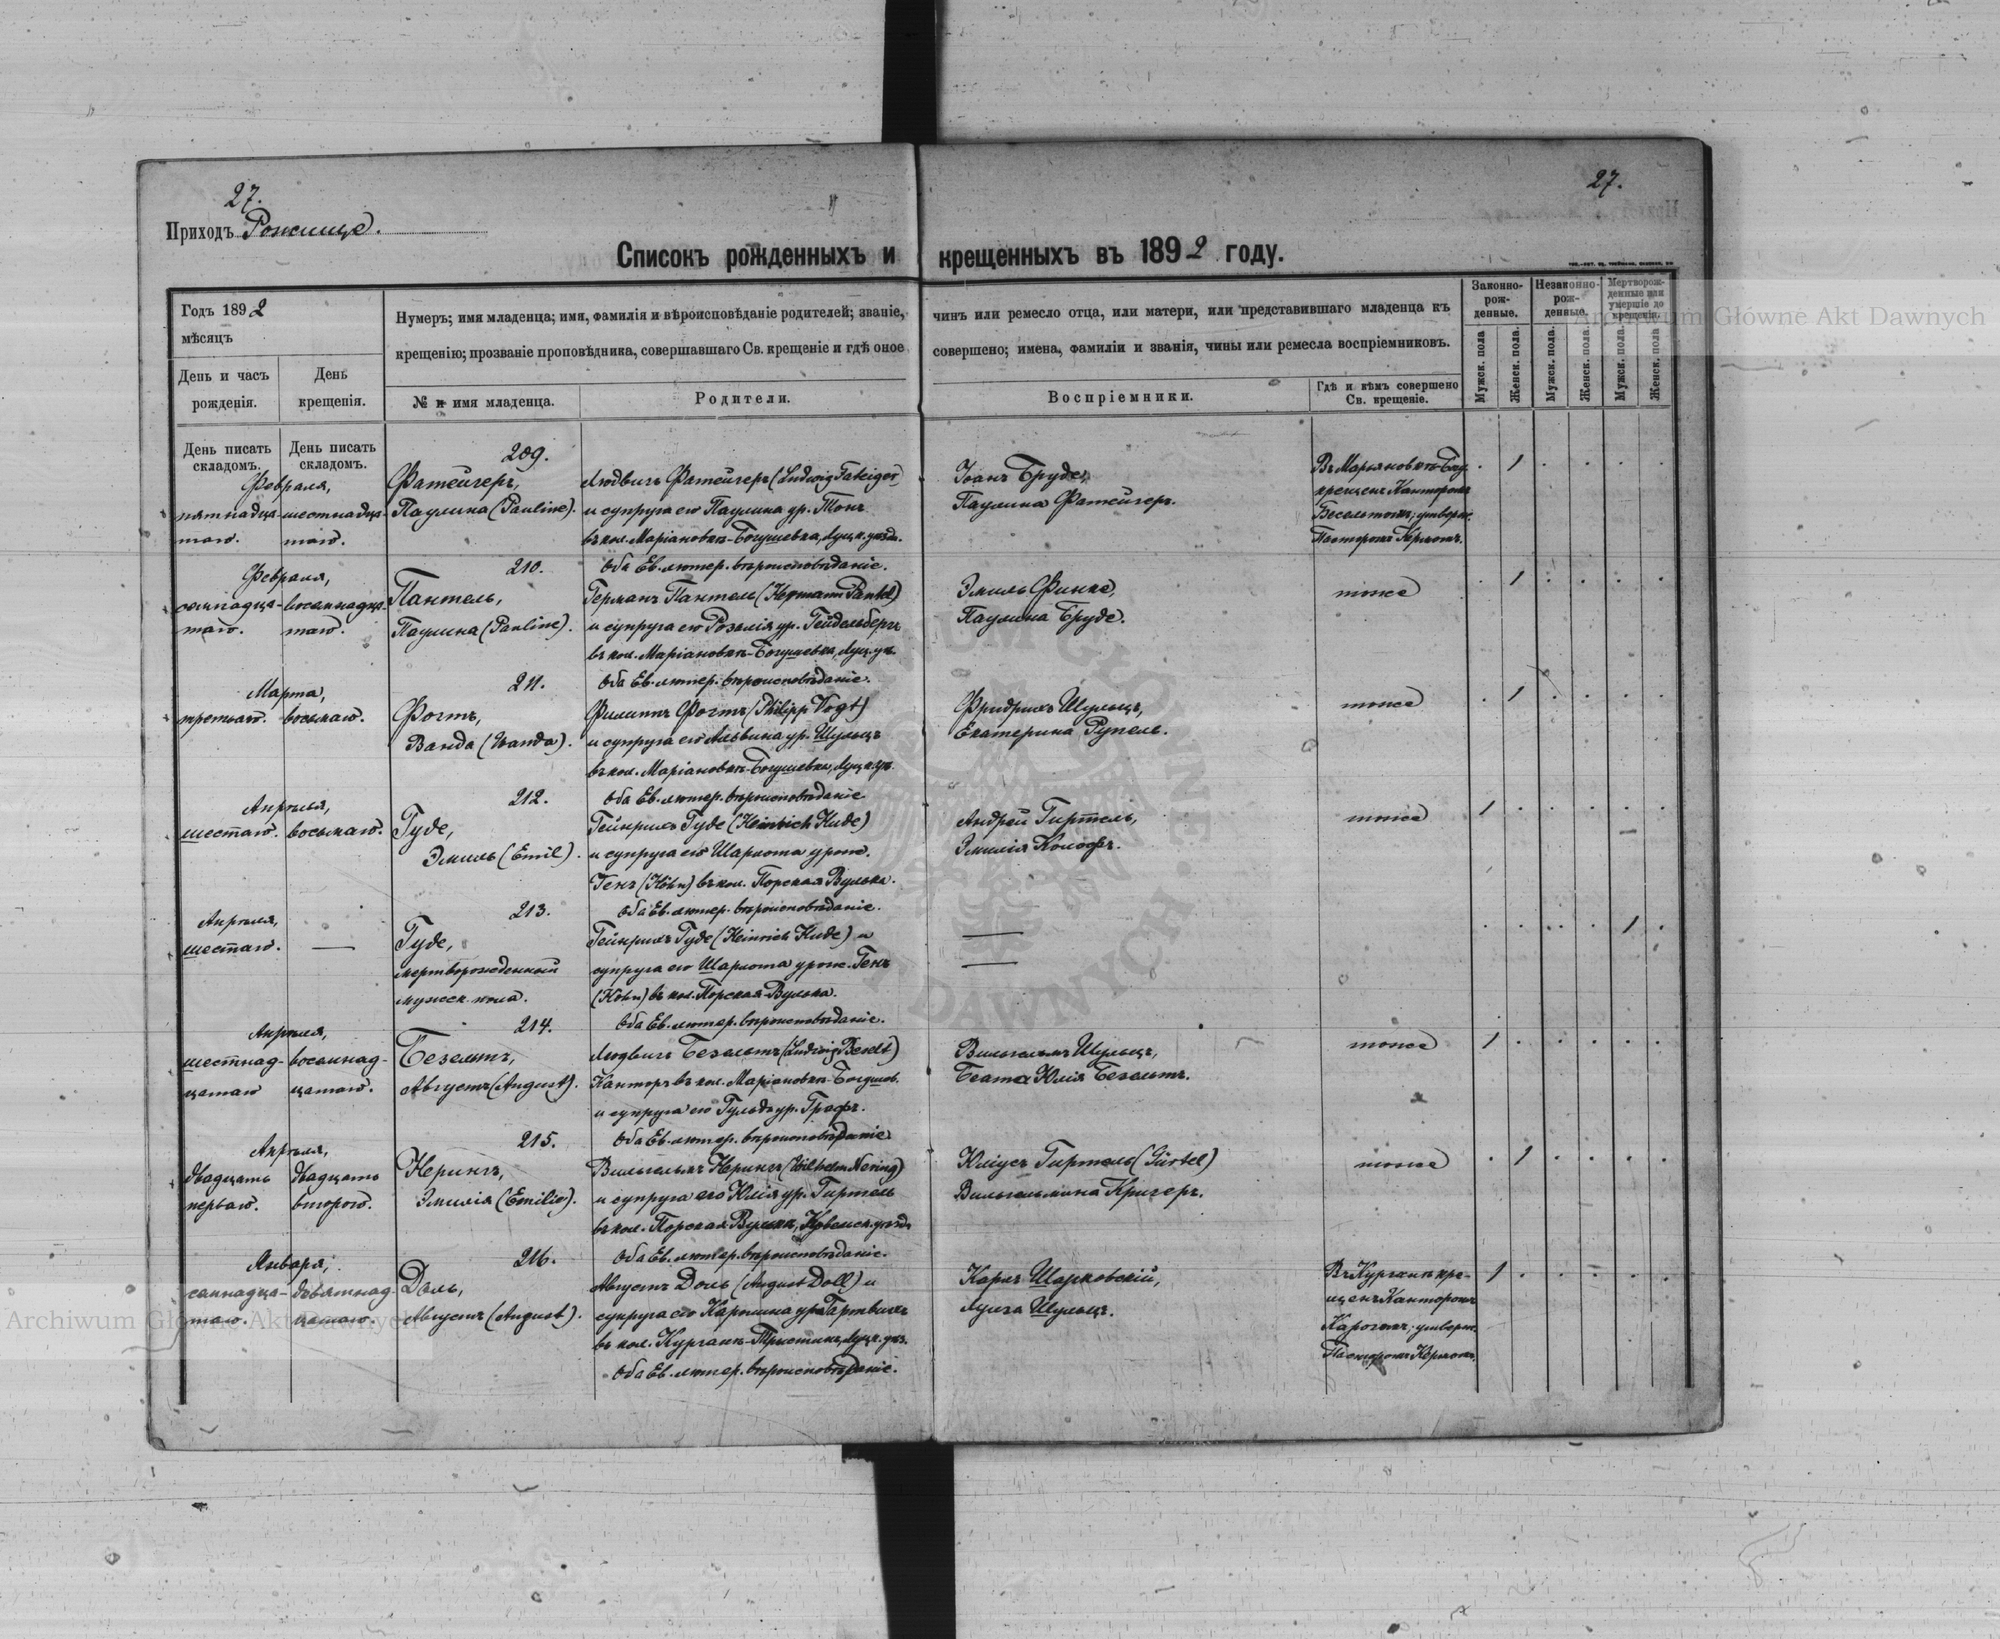 27.
27.
Приходъ Рожище.
Списокъ рожденныхъ и крещенныхъ въ 1892 году.
Годъ 1892
мѣсяцъ
День и часъ рожденія.
День крещенія.
Нумеръ; имя младенца; имя, фамилія и вѣроисповѣданіе родителей; званіе, чинъ или ремесло отца, или матери, или представившаго младенца къ
крещенію; прозваніе проповѣдника, совершавшаго Св. крещеніе и гдѣ оное совершено; имена, фамиліи и званія, чины или ремесла воспріемниковъ.
№ и имя младенца.
Родители.
Воспріемники.
Гдѣ и кѣмъ совершено Св. крещеніе.
Законно-рож-денные.
Незаконно-рож-денные.
Мертворож-денные или умершіе до крещенія.
Мужск. пола
Женск. пола.
Мужск. пола.
Женск. пола.
Мужск. пола.
Женск. пола
День писать складомъ.
День писать складомъ.
209.
Февраля,
пятнадца-таго.
шестнадца-таго.
Фатейгеръ,
Паулина (Pauline).
Людвигъ Фатейгеръ (Ludwig Fateiger)
и супруга его Паулина ур. Тонъ
въ кол. Маріановкѣ-Богушевка, Луцк. уѣзд.
Оба Ев. лютер. вѣроисповѣданіе.
Іоанъ Бруде,
Паулина Фатейгеръ.
Въ Марьяновкѣ-Богу.
крещенъ Канторомъ
Безельтомъ; утверж.
Пасторомъ Кермомъ.
1
210.
Февраля,
семнадца-таго.
восемнадца-таго.
Пантель,
Паулина (Pauline).
Германъ Пантель (Hermann Pantel)
и супруга его Розалія ур. Гейдельберъ
въ кол. Маріановкѣ-Богушевка, Луц. уѣ.
Оба Ев. лютер. вѣроисповѣданіе.
Эмиль Финке,
Паулина Бруде.
тоже
1
211.
Марта,
третьяго.
восьмаго.
Фогтъ,
Ванда (Wanda).
Филиппъ Фогтъ (Philipp Vogt)
и супруга его Альвина ур. Шульцъ
въ кол. Маріановкѣ-Богушевка, Луцк. уѣ.
Оба Ев. лютер. вѣроисповѣданіе
Фридрихъ Шульцъ,
Екатерина Рупель.
тоже
1
212.
Апрѣля,
шестаго.
восьмаго.
Гуде,
Эмиль (Emil).
Гейнрихъ Гуде (Heinrich Hude)
и супруга его Шарлота урож.
Генъ (Höhn) въ кол. Порская Вулька.
Оба Ев. лютер. вѣроисповѣданіе.
Андрей Гиртель,
Эмилія Колофъ.
тоже
1
213.
Апрѣля,
шестаго.
—
Гуде,
мертворожденный
мужск. пола.
Гейнрихъ Гуде (Heinrich Hude) и
супруга его Шарлота урож. Генъ
(Höhn) въ кол. Порская-Вулька.
Оба Ев. лютер. вѣроисповѣданіе.
—
—
1
214.
Апрѣля,
шестнад-цатаго
восемнад-цатаго.
Безельтъ,
Августъ (August).
Людвигъ Безельтъ (Ludwig Beselt)
Канторъ въ кол. Маріановкѣ-Богушов.
и супруга его Гульда ур. Графъ.
Оба Ев. лютер. вѣроисповѣданіе
Вильгельмъ Шульцъ,
Беата Юлія Безельтъ.
тоже
1
215.
Апрѣля,
двадцать перваго.
двадцать втораго.
Нерингъ,
Эмилія (Emilie).
Вильгельмъ Нерингъ (Wilhelm Nering)
и супруга его Юлія ур. Гиртель
въ кол. Порская Вулька, Ковельск. уѣзд.
Оба Ев. лютер. вѣроисповѣданіе.
Юліусъ Гиртель (Gürtel)
Вильгельмина Кригеръ.
тоже
1
216.
Января,
семнадца-таго.
девятнад-цатаго.
Доль,
Августъ (August).
Августъ Доль (August Doll) и
супруга его Каролина ур. Гартвихъ
въ кол. Курганъ-Тристинъ, Луцк. уѣз.
Оба Ев. лютер. вѣроисповѣданіе.
Карлъ Шарковскій,
Луиза Шульцъ.
Въ Курганѣ кре-
щенъ Канторомъ
утверж.
Пасторомъ Кермомъ.
1
Archiwum Główne Akt Dawnych
Archiwum Główne Akt Dawnych